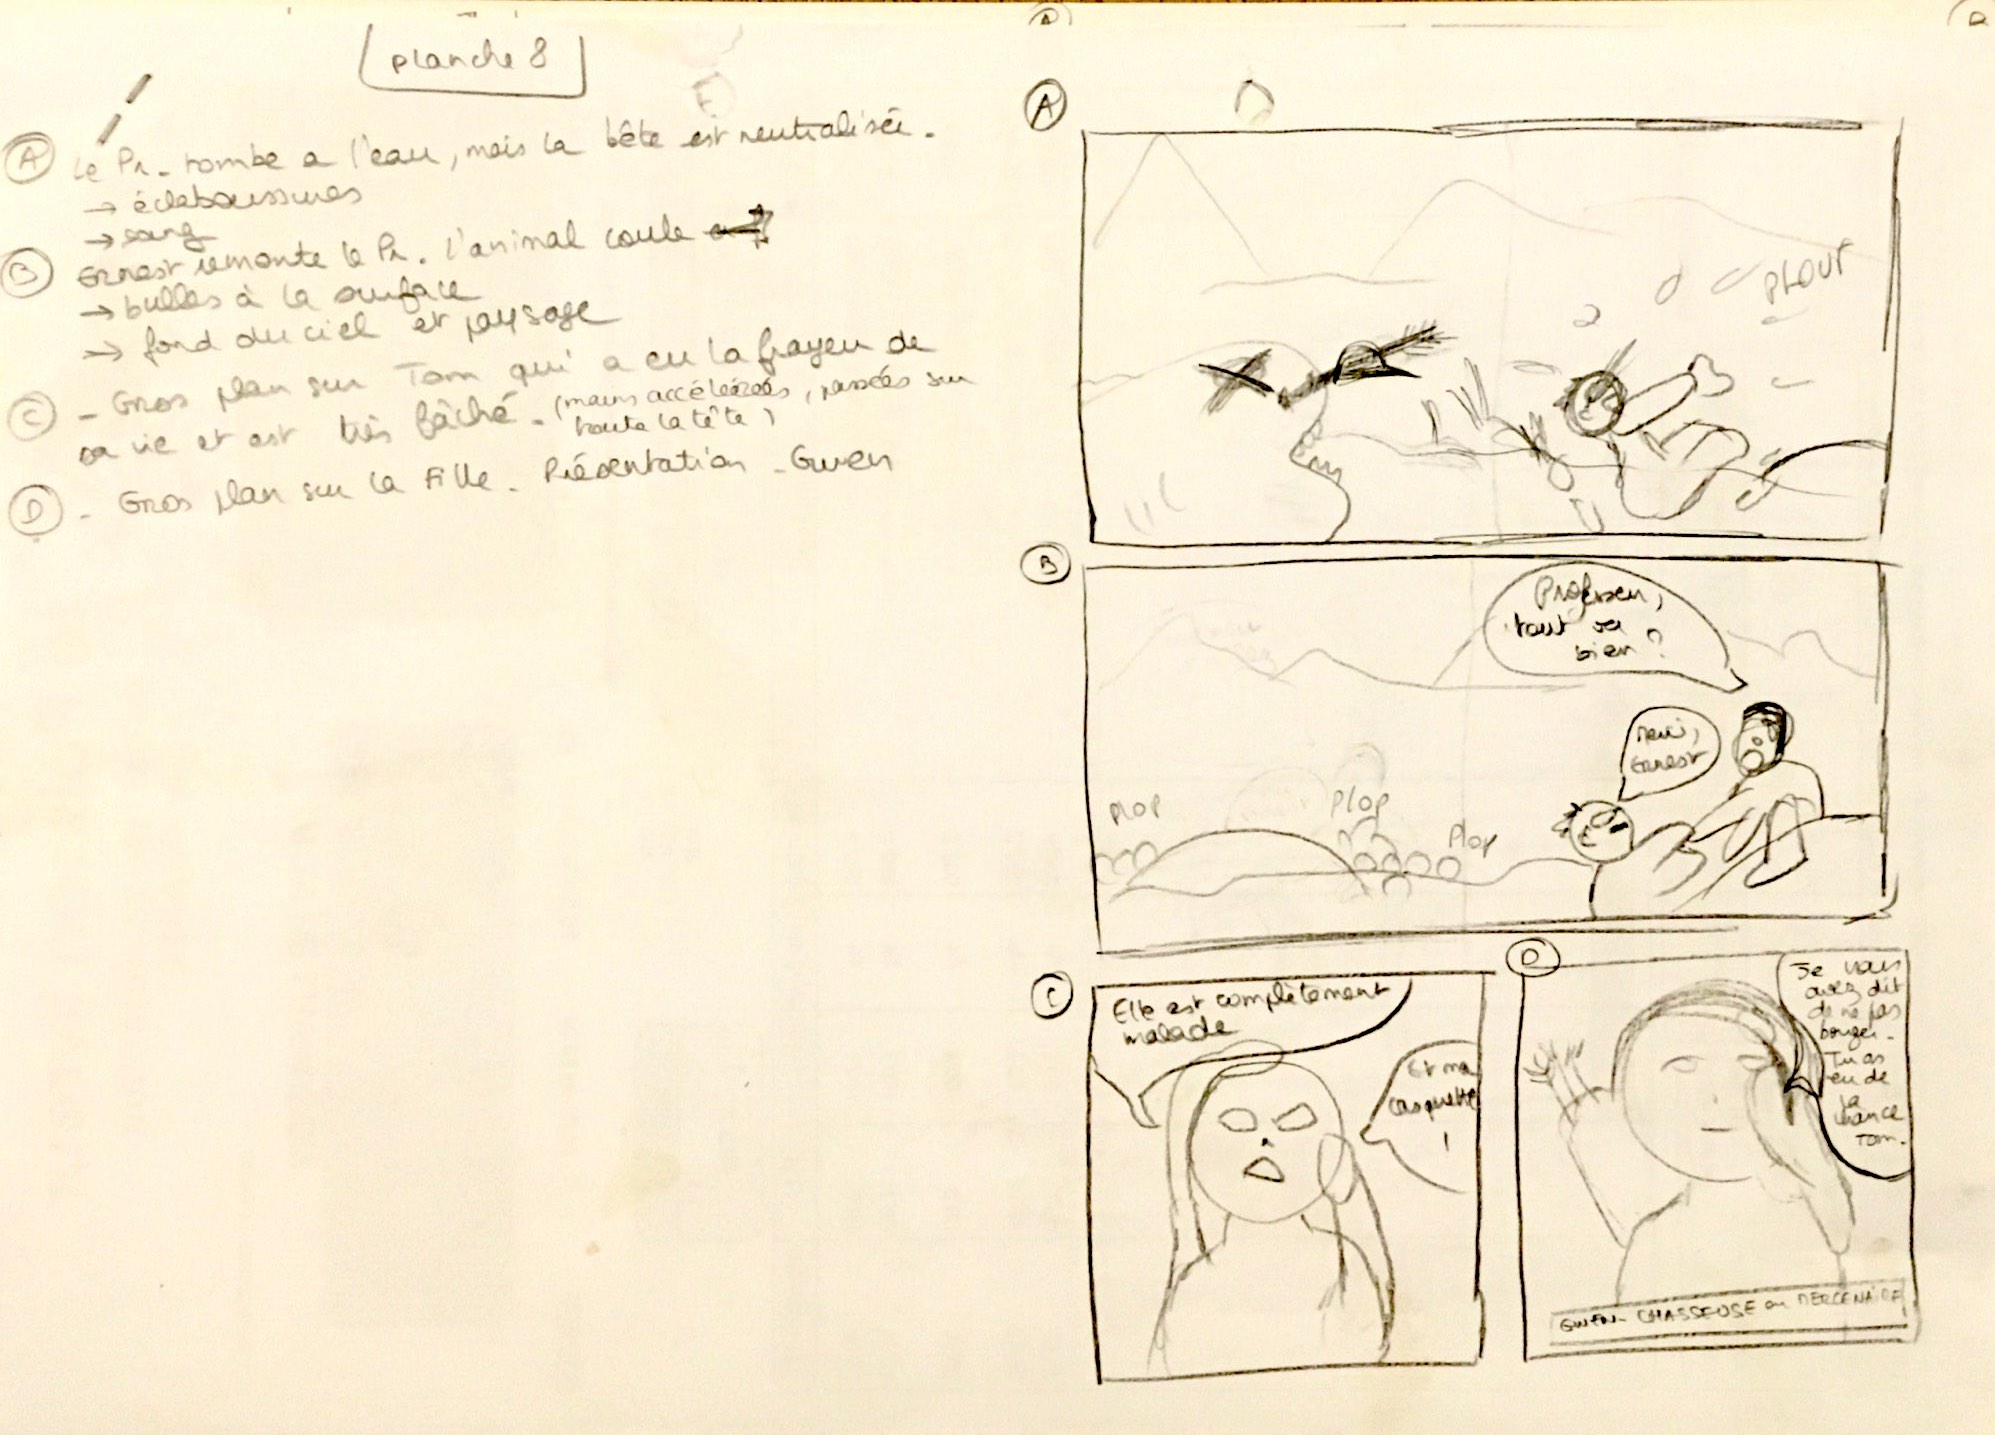 Planche 8
A
Le Pr. tombe a l'eau, mais la bête est neutralisée.
→ éclaboussures
→ sang
B
Ernest remonte le Pr. L'animal coule
→ bulles à la surface
→ fond du ciel et paysage
C
- Gros plan sur Tom qui a eu la frayeur de
sa vie et est très fâché. (mains accélérées, passées sur
toute la tête)
D
- Gros plan sur la Fille. Présentation - Gwen
A
A
PLOUF
B
Professeur,
tout va
bien ?
Merci,
Ernest
PLOP
PLOP
Plop
C
Elle est complètement
malade
Et ma
casquette
!
D
Je vous
avez dit
de ne pas
bouger.
Tu as
eu de
la
chance
Tom.
GWEN - CHASSEUSE ou MERCENAIRE